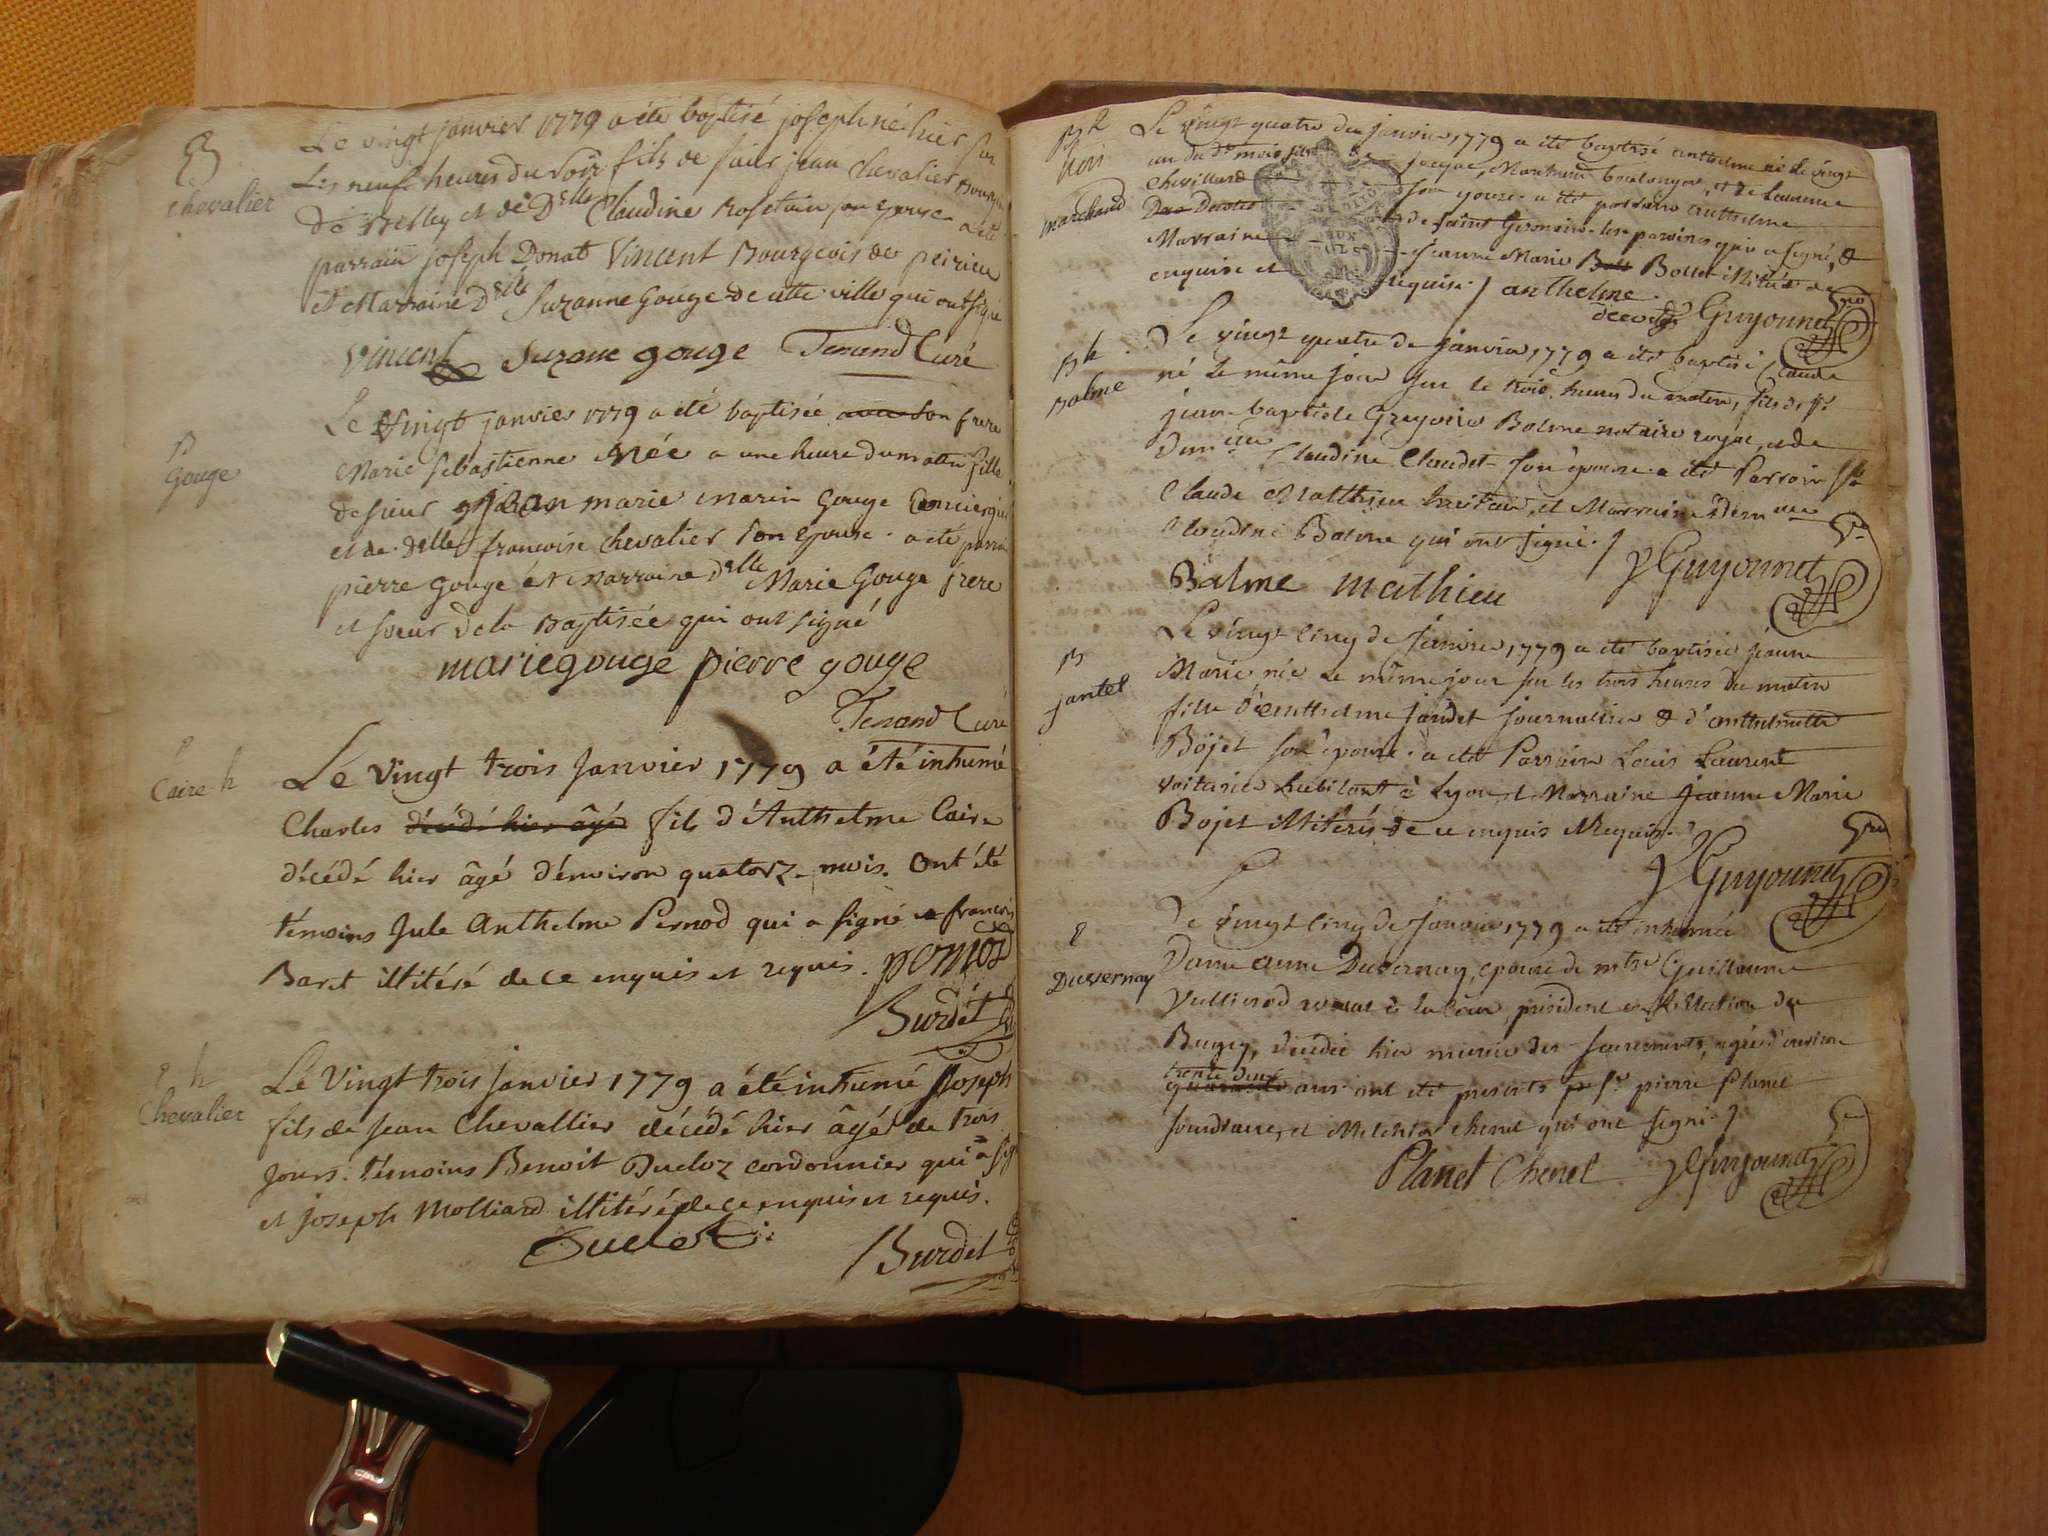 B
chevalier
Le vingt janvier 1779 a été baptisé joseph né hier sur
Les neuf heures du soir fils de sieur jean chevalier Bourgeois
de Belley et de Delle Claudine Rosetain son epouse a été
parrain joseph Donat Vincent Bourgeois de peirieu
et Marraine Delle Suzanne Gouge de cette ville qui ont signé
Vincent Suzane gouge Tenand Curé
B
Gouge
Le Vingt janvier 1779 a été baptisée avec son frere
Marie sebastienne Née a une heure du matin fille
de sieur jean marie marin Gouge
et de delle francoise chevalier son epouse . a été parrain
pierre gouge et marraine delle Marie Gouge frere
et soeur dela Baptisée qui ont signé
marie gouge pierre gouge
Tenand Curé
Caire h
Le Vingt trois Janvier 1779 a été inhumé
Charles décédé hier âgé fils d'Anthelme Caire
décédé hier âgé d'environ quatorze mois. Ont été
témoins Jule Anthelme Pernod qui a signé et francois
Baret illitéré de ce enquis et requis. pernod
Burdet
h
Chevalier
Le Vingt trois Janvier 1779 a été inhumé Joseph
fils de Jean Chevallier décédé hier âgé de trois
jours. témoins Benoit Ducloz cordonnier qui a sig
et Joseph Molliard illitéré de ce enquis et requis.
Burdet
B h
marchand
Le vingt quatre de janvier 1779 a été baptisé anthelme né le vingt
un du dt mois fils de jacque Marchand boulanger, et de Laurence
Chevillard son epouse a été parrain anthelme
de saint Germain les paroines qui a signé, &
Marraine Jeanne Marie Bollet illitéré de
enquise et requise ./ anthelme
Guyonnet
B h
Balme
Le vingt quatre de janvier 1779 a été baptisé Claude
né le même jour sur le trois heures du matin, fils de sr
jean-baptiste Gregoire Balme notaire royal, et de
Claudine Claudet son epouse a été Parrain sr
Claude Matthieu et Marraine
Claudine Balme qui ont signé ./
Balme mathieu Guyonnet
B
jantet
Le vingt cinq de Janvier 1779 a été baptisée jeanne
Marie née le même jour sur les trois heures du matin
fille d'anthelme jandet journalier & d'anthelmette
Bojet son epouse . a été Parrain Louis Laurent
voiturier habitant à Lyon et Marraine jeanne Marie
Bojet illitérés de ce enquis et requis.
Guyonnet
Duvernay
Le vingt cinq de Janvier 1779 a été inhumée
Dame anne Duvernay, epouse de mtre Guillaume
avocat à la Cour, président en l'Election du
Bugey, décédée hier munie des sacrements, agée d'environ
trente deux
quarante ans ont été présents sr pierre Planet
et Melchior chenet qui ont signé ./
Planet Chenet Guyonnet